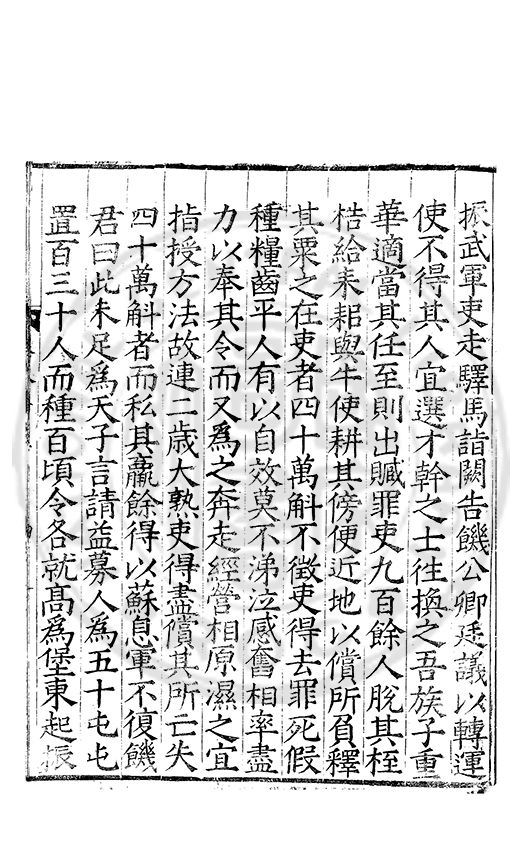 振武軍吏走驛馬詣闕告饑公卿廷議以轉運
使不得其人宜選才幹之士往換之吾族子重
華適當其任至則出贓罪吏九百餘人脫其桎
梏給耒耜與牛使耕其傍便近地以償所負釋
其粟之在吏者四十萬斛不徵吏得去罪死假
種糧齒平人有以自效莫不涕泣感奮相率盡
力以奉其令而又爲之奔走經營相原濕之宜
指授方法故連二歲大熟吏得盡償其所亡失
四十萬斛者而私其贏餘得以蘇息軍不復饑
君曰此未足爲天子言請益募人爲五十屯屯
置百三十人而種百頃令各就高爲堡東起振